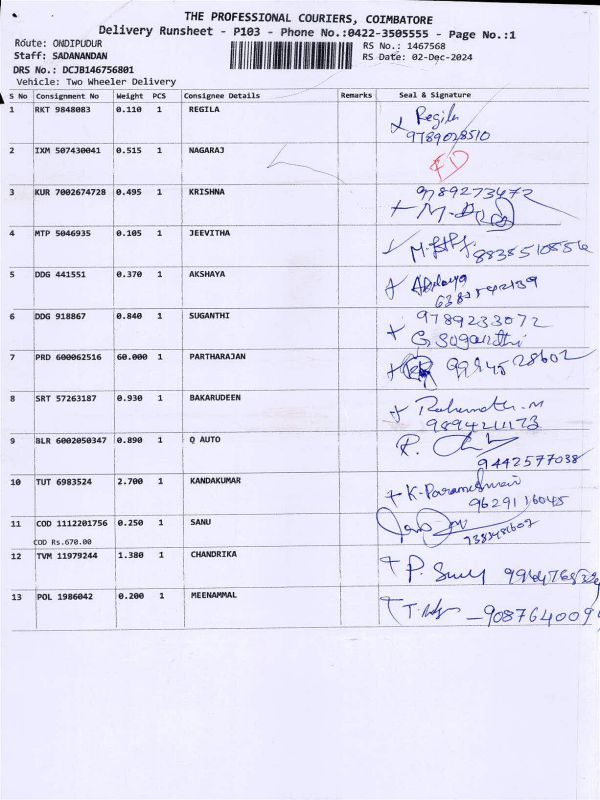 THE PROFESSIONAL COURIERS, COIMBATORE
Delivery Runsheet - P103 - Phone No.:0422-3505555 - Page No.:1
Route: ONDIPUDUR
RS No.: 1467568
Staff: SADANANDAN
RS Date: 02-Dec-2024
DRS No.: DCJB146756801
Vehicle: Two Wheeler Delivery
S No Consignment No Weight PCS Consignee Details Remarks Seal & Signature
1 RKT 9848083 0.110 1 REGILA Regila
9789028510
2 IXM 507430041 0.515 1 NAGARAJ
3 KUR 7002674728 0.495 1 KRISHNA 9789273472
4 MTP 5046935 0.105 1 JEEVITHA 8838510856
5 DDG 441551 0.370 1 AKSHAYA
6 DDG 918867 0.840 1 SUGANTHI 9789233072
G. Suganthi
7 PRD 600062516 60.000 1 PARTHARAJAN 9994528602
8 SRT 57263187 0.930 1 BAKARUDEEN
9 BLR 6002050347 0.890 1 Q AUTO
9442577038
10 TUT 6983524 2.700 1 KANDAKUMAR K-Parameshwari
9629116045
11 COD 1112201756 0.250 1 SANU
COD Rs.670.00
12 TVM 11979244 1.380 1 CHANDRIKA
13 POL 1986042 0.200 1 MEENAMMAL 908764009